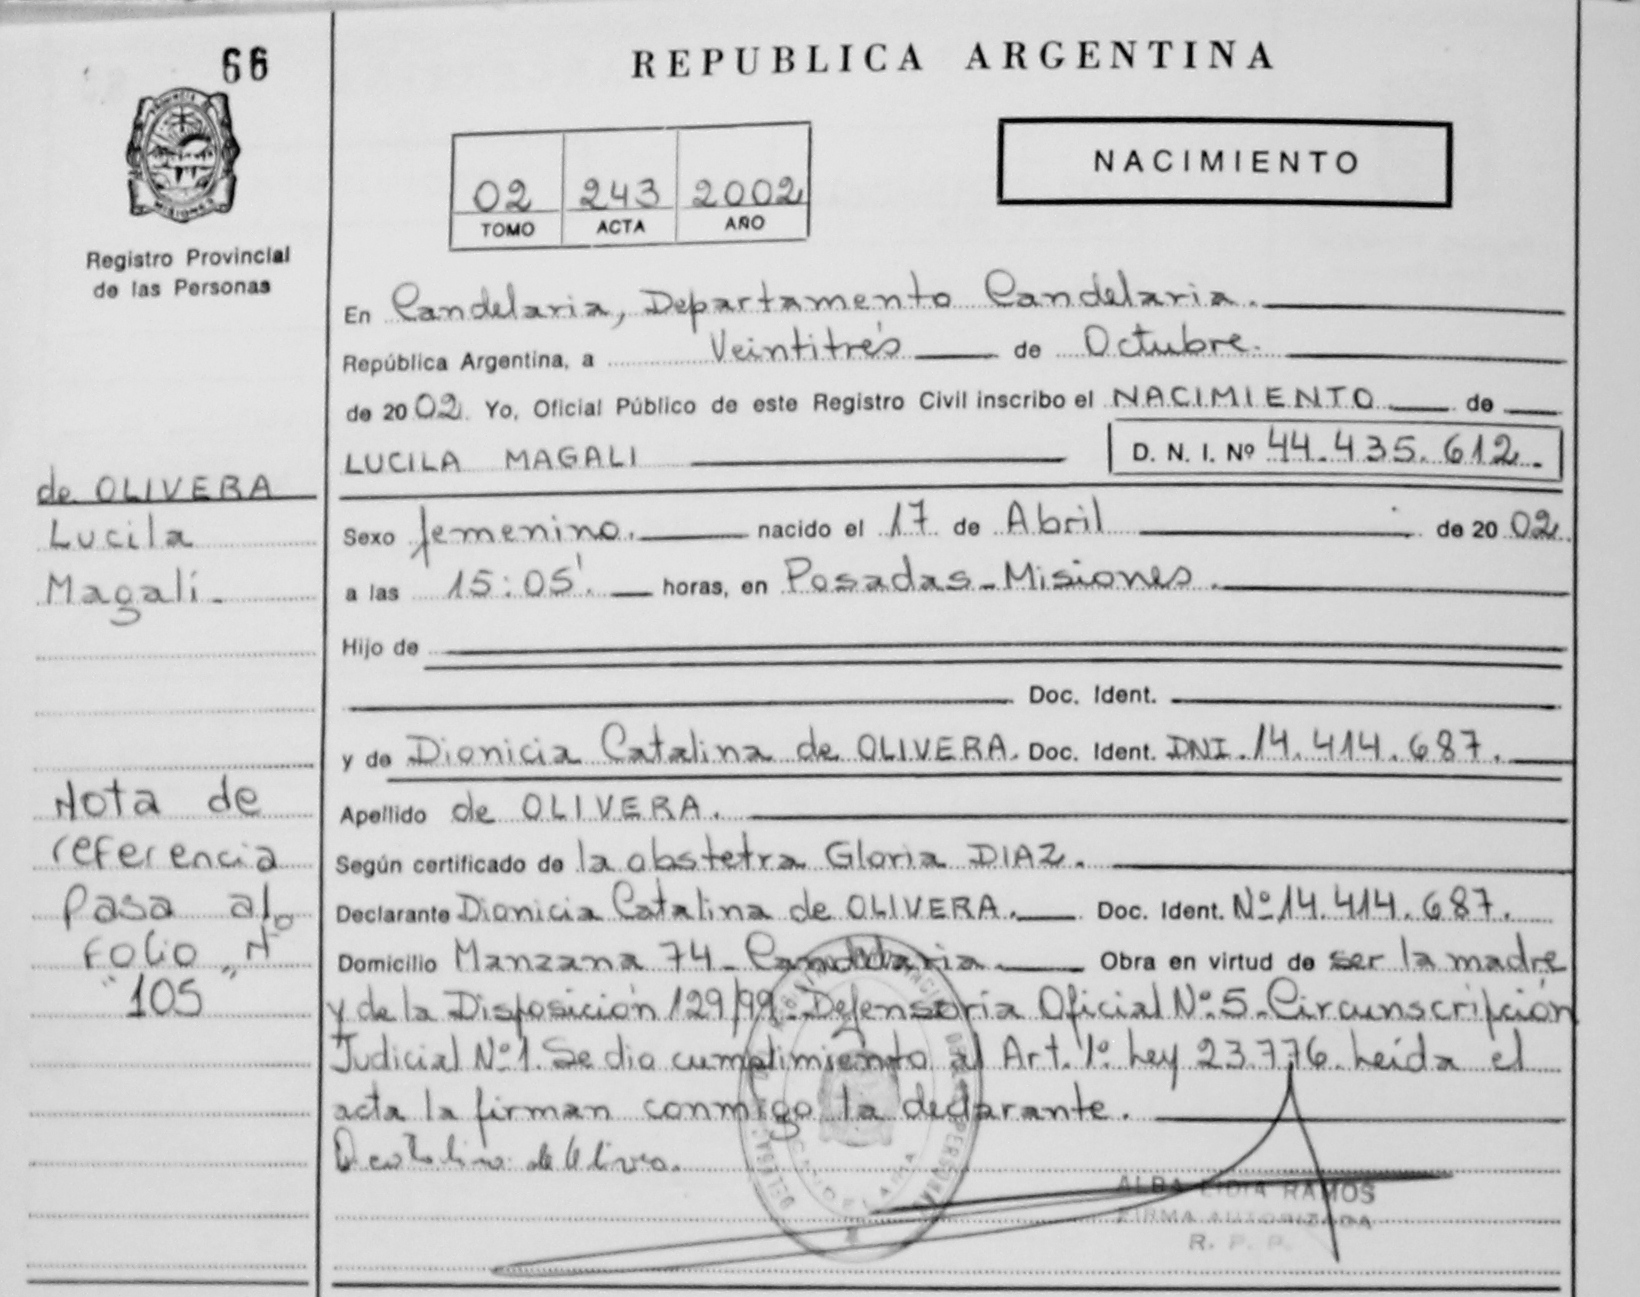 66
REPUBLICA ARGENTINA
PROVINCIA
MISIONES
Registro Provincial
de las Personas
02 243 2002
TOMO ACTA AÑO
NACIMIENTO
En Candelaria, Departamento Candelaria.
República Argentina, a Veintitrés de Octubre.
de 2002. Yo, Oficial Público de este Registro Civil inscribo el NACIMIENTO de
LUCILA MAGALI D. N. I. Nº 44.435.612.
de OLIVERA
Lucila
Magalí.
Sexo femenino. nacido el 17 de Abril de 2002.
a las 15:05'. horas, en Posadas-Misiones.
Hijo de
Doc. Ident.
y de Dionicia Catalina de OLIVERA. Doc. Ident. DNI.14.414.687.
Apellido de OLIVERA.
Según certificado de la obstetra Gloria DIAZ.
Declarante Dionicia Catalina de OLIVERA. Doc. Ident. Nº14.414.687.
Domicilio Manzana 74-Candelaria. Obra en virtud de ser la madre
y de la Disposición 129/99-Defensoría Oficial Nº5-Circunscripción
Judicial Nº1. Se dio cumplimiento al Art. 1º Ley 23.776. Leída el
acta la firman conmigo la declarante.
Nota de
referencia
Pasa al
Folio Nº
"105
ALBA LIDIA RAMOS
FIRMA AUTORIZADA
R. P. P.